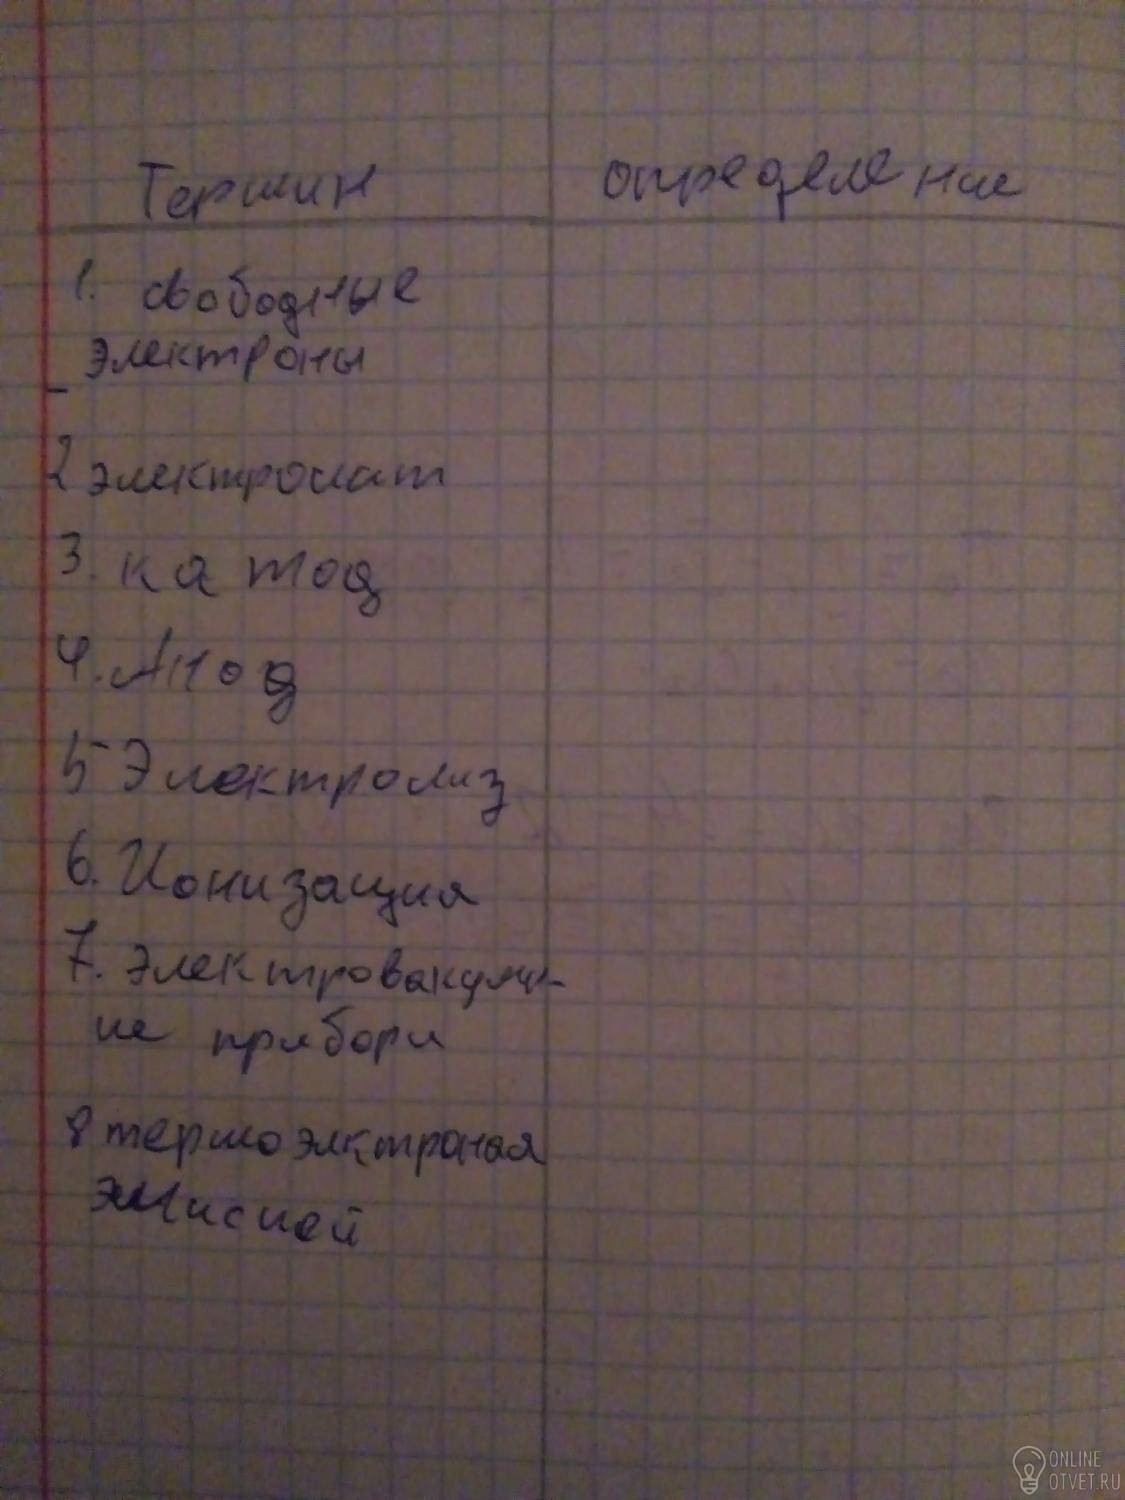 Термин определение
1. свободные
электроны
2 электролит
3. катод
4. Анод
5 Электролиз
6. Ионизация
7. Электровакуумн-
ие прибори
8 термоэлктроная
эмиссией
ONLINE
OTVET.RU